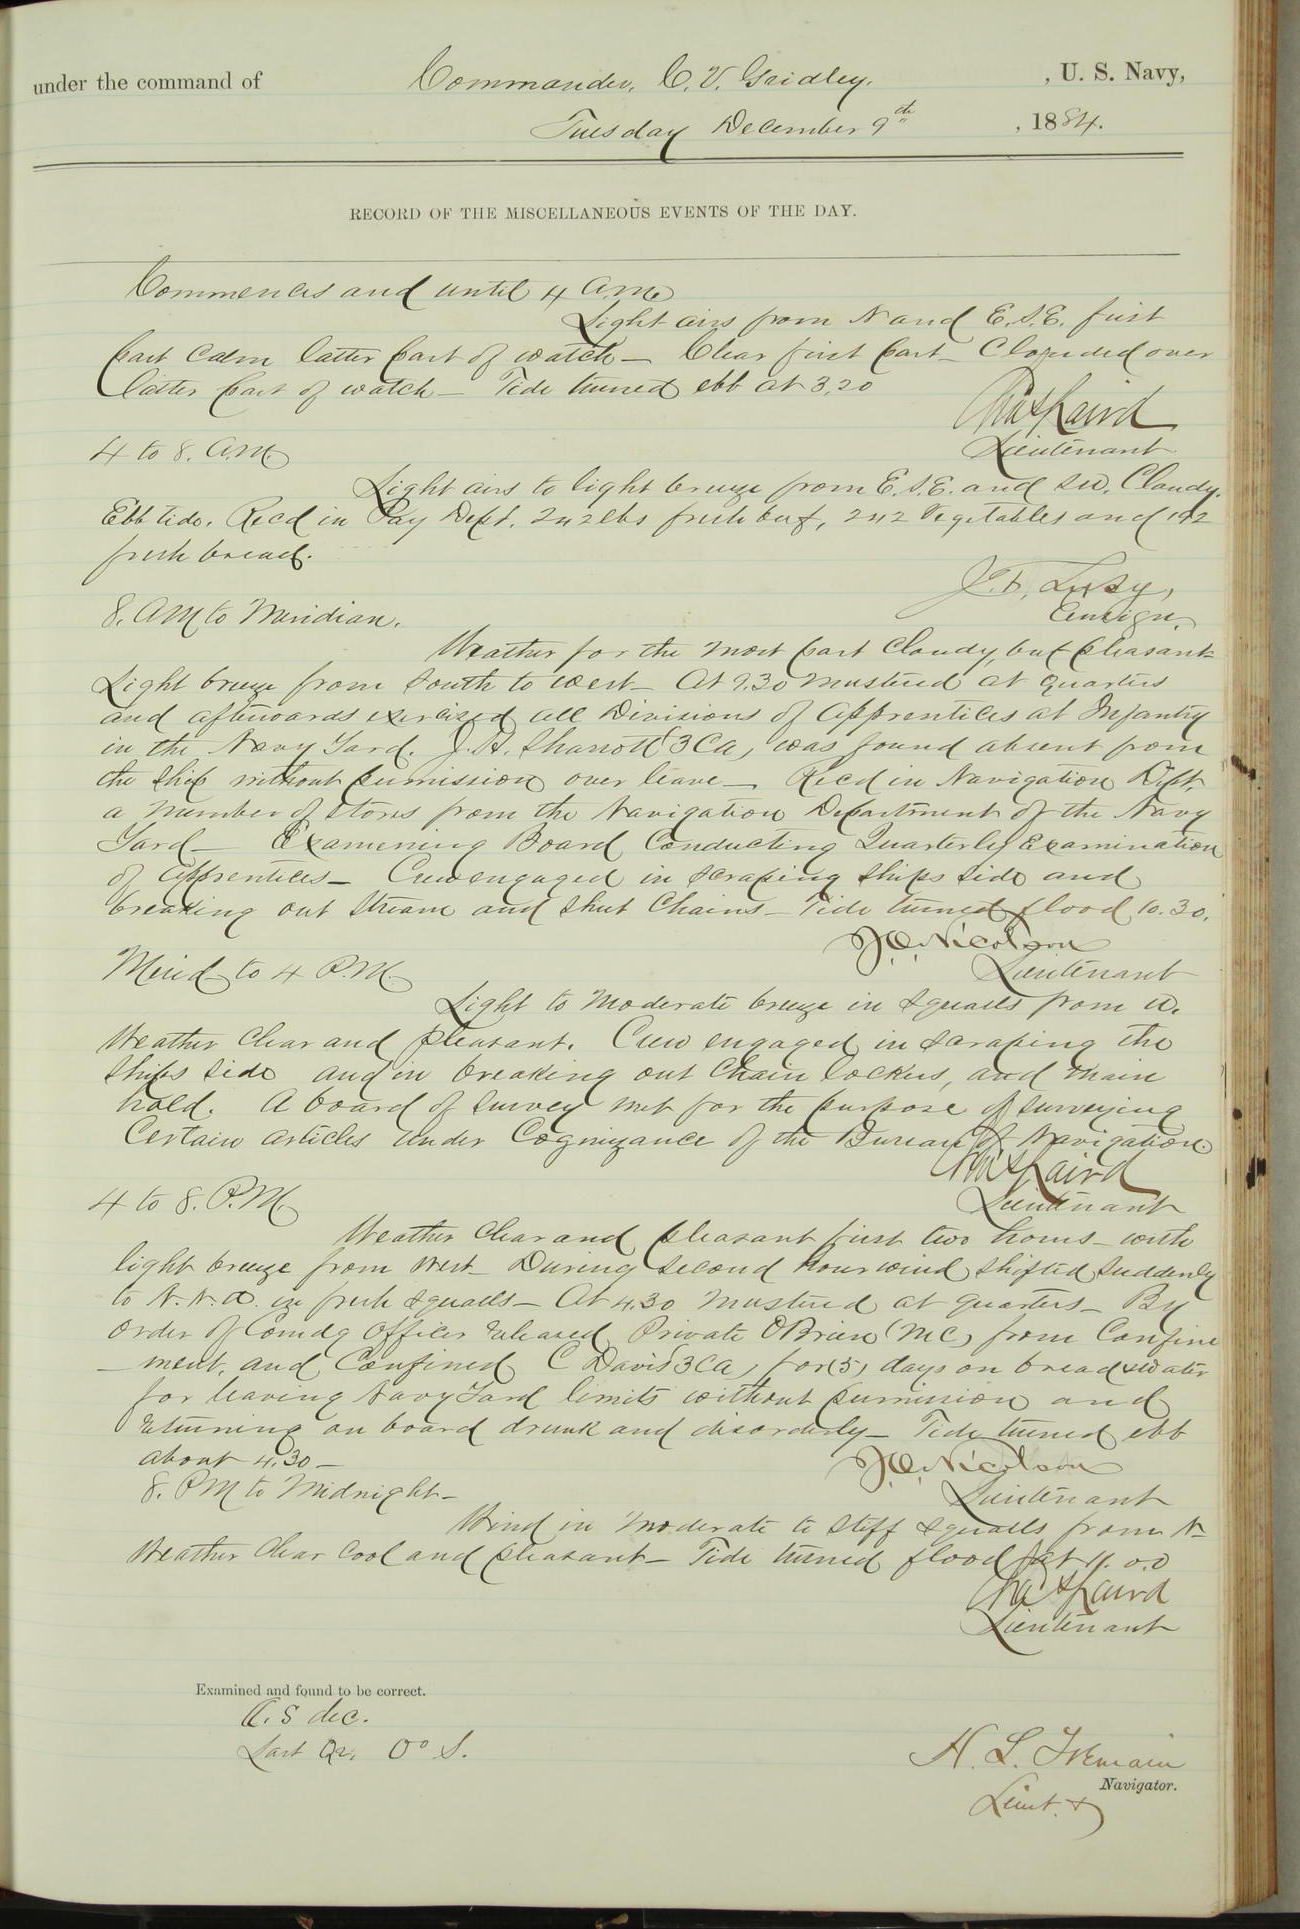 under the command of Commander, C. V. Gridley. , U. S. Navy,
Tuesday December 9th , 1884.
RECORD OF THE MISCELLANEOUS EVENTS OF THE DAY.
Commences and until 4 a.m.
Light airs from N and E.S.E. first
part calm latter part of watch — Clear first part — Clouded over
latter part of watch — Tide turned ebb at 3.20
Chas Laird
Lieutenant
4 to 8. A.M.
Light airs to light breeze from E.S.E. and SW. Cloudy.
Ebb tide. Recd in Pay Dept. 242 lbs fresh beef, 242 Vegetables and 192
fresh bread.
Ensign.
8. AM to Meridian.
Weather for the most part Cloudy, but pleasant
Light breeze from South to West — At 9.30 mustered at quarters
and afterwards exercised all Divisions of Apprentices at Infantry
in the Navy Yard. J. H. (3 Ca) was found absent from
the ship without permission over leave — Recd in Navigation Dept.
a number of stores from the Navigation Department of the Navy
Yard — Examining Board Conducting Quarterly Examination
of Apprentices — Crew engaged in scraping ships side and
breaking out Stream and Shut Chains — Tide turned flood 10.30.
J.O. Nicolson
Lieutenant
Merid to 4 P.M.
Light to moderate breeze in squalls from W.
Weather clear and pleasant. Crew engaged in scraping the
ships side and in breaking out Chain lockers, and main
hold. A board of survey met for the purpose of surveying
Certain articles under Cognizance of the Bureau of Navigation.
Chas Laird
Lieutenant
4 to 8. P.M.
Weather clear and pleasant first two hours — with
light breeze from West — During second hour wind shifted suddenly
to N.N.W. in fresh squalls — At 4.30 mustered at quarters — By
order of Comdg Officer released Private O'Brien (MC) from Confine
-ment, and Confined C Davis (3 Ca) for (5) days on bread & water
for leaving Navy Yard limits without permission and
returning on board drunk and disorderly — Tide turned ebb
about 4.30 —
J.O. Nicolson
Lieutenant
8. PM to Midnight —
Wind in moderate to stiff squalls from N —
Weather clear cool and pleasant — Tide turned flood at 11.00
Chas Laird
Lieutenant
Examined and found to be correct.
A. S dec.
Last Qr. 0° S.
H. L. Tremain
Navigator.
Lieut. &